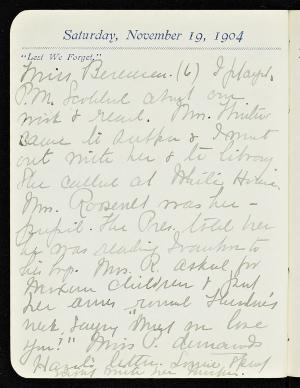 Saturday, November 19, 1904
"Lest We Forget."
Miss Berenson. (6) I played,
P.M. about our
work & read. Mrs.
came to supper & I went
out with her & to library
She called at White House
Mrs. Roosevelt was her
pupil. The Pres. told her
he was reading Ivanhoe to
his boy. Mrs. R. asked for
children & put
her arms round
neck, saying "Must we love
you?" Miss P. demands
Hazel's letter. spent
with her